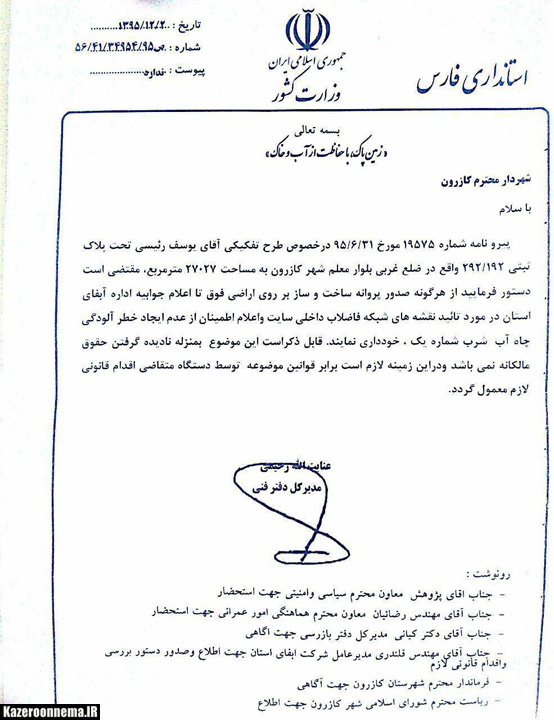 تاریخ : ۱۳۹۵/۱۲/۲۰
شماره : ۵۶/۴۱/۳۴۹۵۴/۹۵ص
پیوست : ندارد
جمهوری اسلامی ایران
وزارت کشور
استانداری فارس
بسمه تعالی
«زمین پاک، با حفاظت از آب و خاک»
شهردار محترم کازرون
با سلام
پیرو نامه شماره ۱۹۵۷۵ مورخ ۹۵/۶/۳۱ درخصوص طرح تفکیکی آقای یوسف رئیسی تحت پلاک
ثبتی ۲۹۲/۱۹۲ واقع در ضلع غربی بلوار معلم شهر کازرون به مساحت ۲۷۰۲۷ مترمربع، مقتضی است
دستور فرمایید از هرگونه صدور پروانه ساخت و ساز بر روی اراضی فوق تا اعلام جوابیه اداره آبفای
استان در مورد تائید نقشه های شبکه فاضلاب داخلی سایت واعلام اطمینان از عدم ایجاد خطر آلودگی
چاه آب شرب شماره یک ، خودداری نمایند. قابل ذکراست این موضوع بمنزله نادیده گرفتن حقوق
مالکانه نمی باشد ودراین زمینه لازم است برابر قوانین موضوعه توسط دستگاه متقاضی اقدام قانونی
لازم معمول گردد.
عنایت الله رحیمی
مدیرکل دفتر فنی
رونوشت :
- جناب اقای پژوهش معاون محترم سیاسی وامنیتی جهت استحضار
- جناب آقای مهندس رضائیان معاون محترم هماهنگی امور عمرانی جهت استحضار
- جناب آقای دکتر کیانی مدیرکل دفتر بازرسی جهت اگاهی
- جناب آقای مهندس قلندری مدیرعامل شرکت ابفای استان جهت اطلاع وصدور دستور بررسی
واقدام قانونی لازم
- فرماندار محترم شهرستان کازرون جهت آگاهی
- ریاست محترم شورای اسلامی شهر کازرون جهت اطلاع
Kazeroonnema.IR